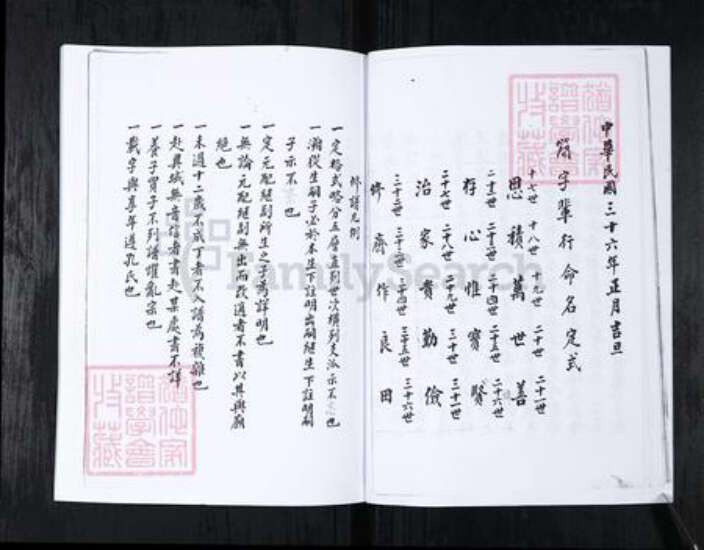 中華民國三十六年正月吉旦
簡字輩行命名定式
十七世 十八世 十九世 二十世 二十一世
恩積萬世善
二十二世 二十三世 二十四世 二十五世 二十六世
存心惟寶賢
二十七世 二十八世 二十九世 三十世 三十一世
治家貴勤儉
三十二世 三十三世 三十四世 三十五世 三十六世
修齊作良田
修譜凡例
一定格式略分五層直列世次橫列支派示不 也
一漸從生嗣子必於本生下註明出嗣繼生下註明嗣
子示不 也
一定元配繼副所生之子為詳明也
一無論元配繼副無出而改適者不書以其與廟
絕也
一未過十二歲不成丁者不入譜為複雜也
一赴異域無音信者書赴某處書不詳
一養子買子不列譜懼亂宗也
一載字與享年遵孔氏也
FamilySearch
譜學會
收藏